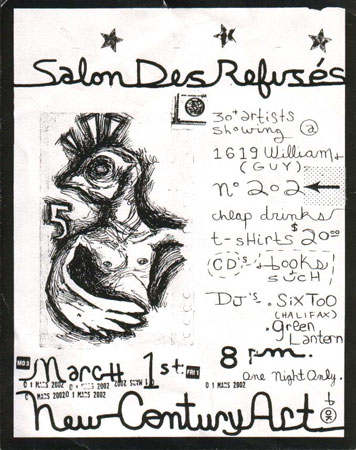 Salon Des Refusés
30+ artists
showing @
1619 William
(GUY)
nº 202
cheap drinks
t-shirts $20.00
CD's books
SUCH
DJ's . SixToo
(HALIFAX)
. green
Lantern
5
March 1st.
8 pm.
FRI 1
0 1 MARS 2002
0 1 MARS 2002
One Night Only.
0 1 MARS 2002
New Century Art